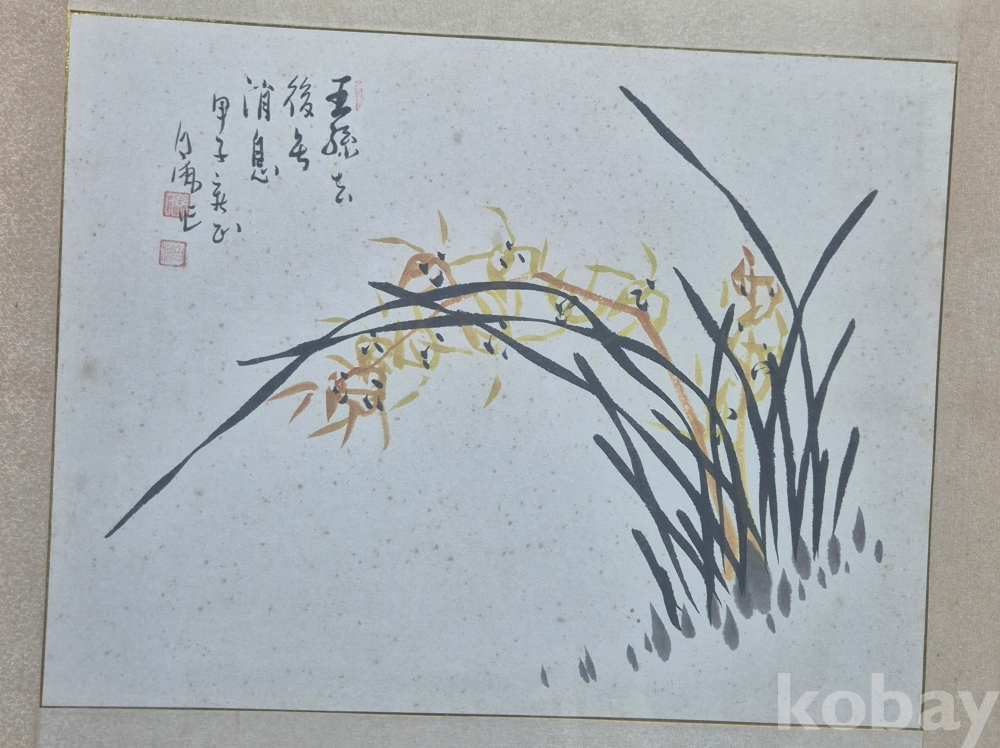 王孫去
後無
消息
甲子新正
作
kobay